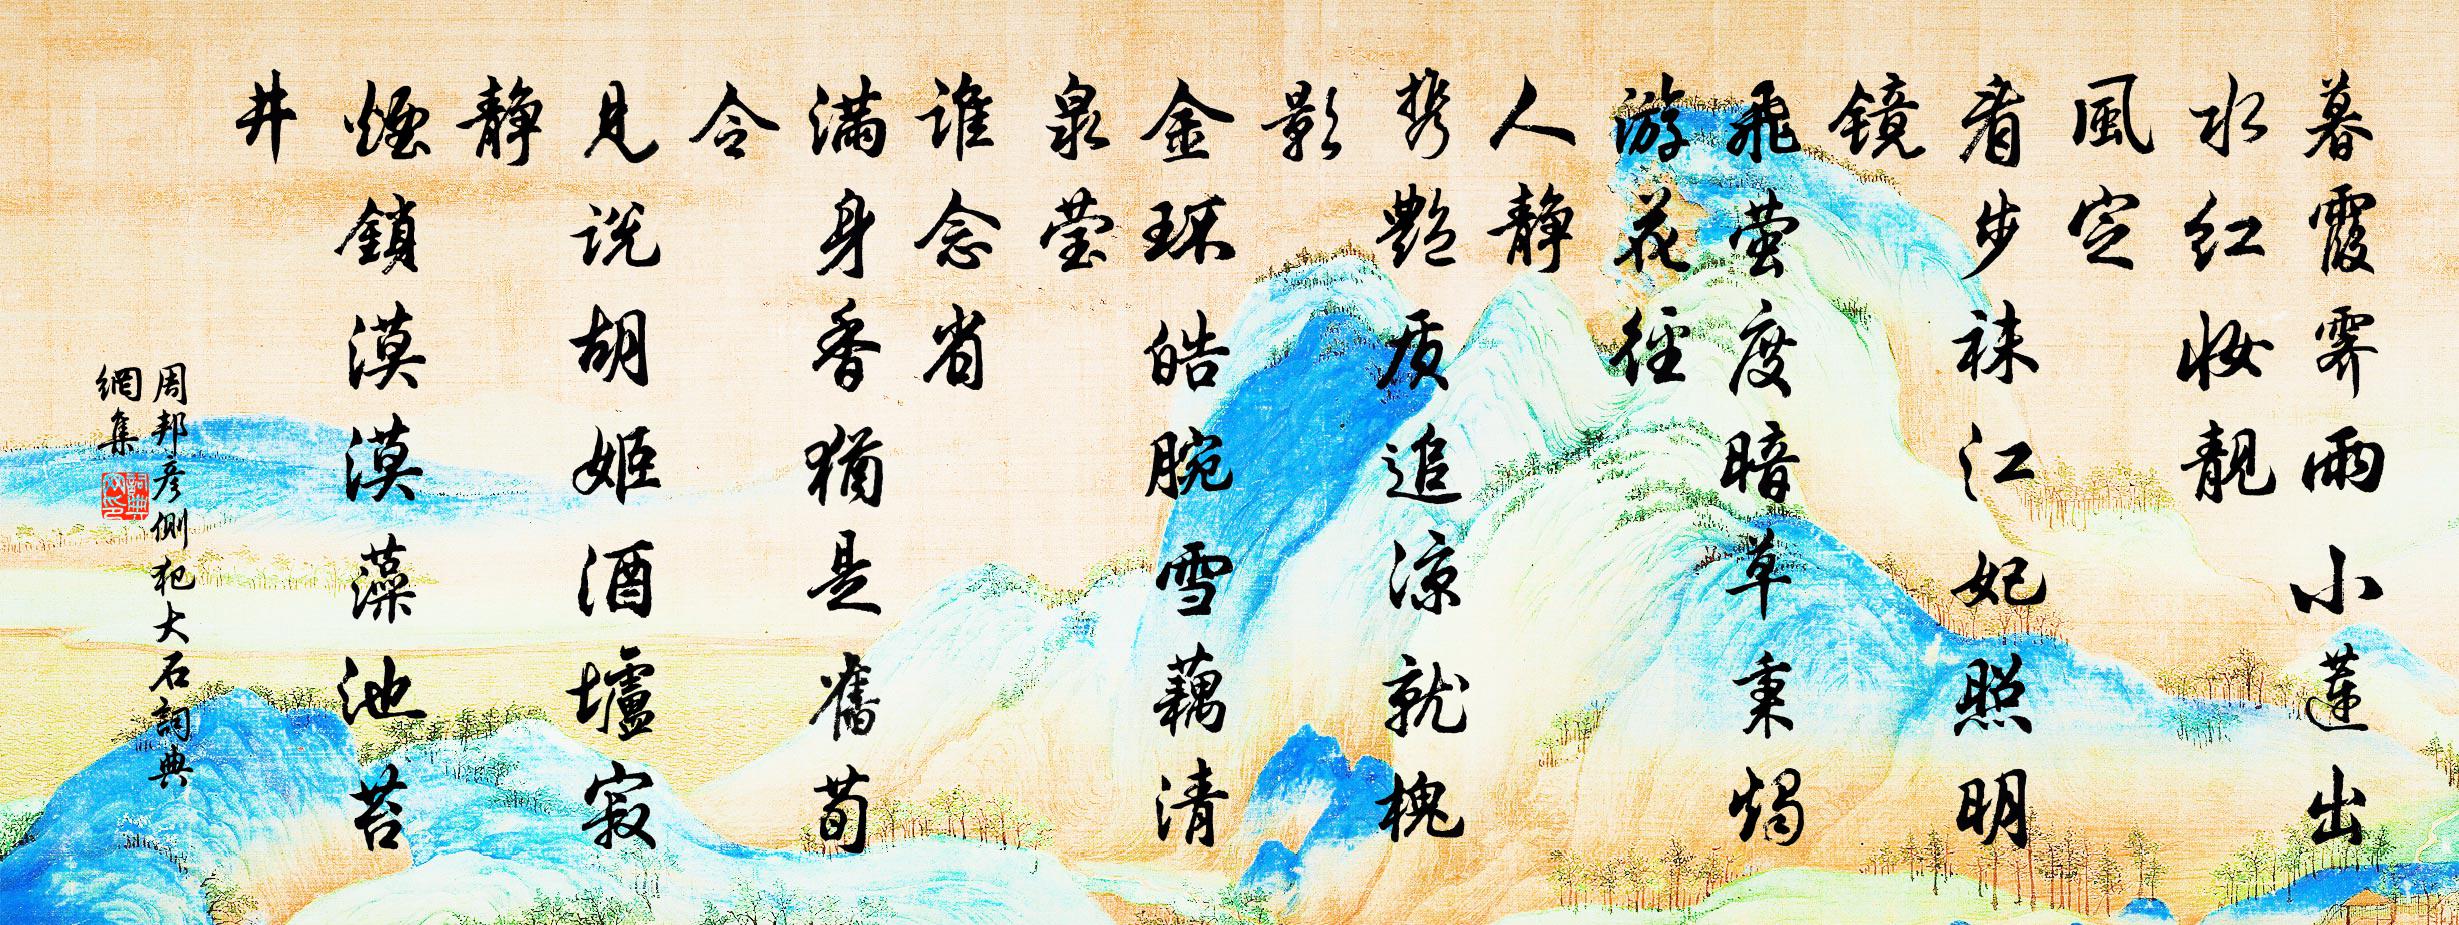 暮霞霽雨小蓮出
水红妝靚
風定
看步袜江妃照明
镜
飛萤度暗草秉燭
游花径
人静
携艷质追涼就槐
影
金环皓腕雪藕清
泉莹
谁念省
满身香犹是舊荀
令
見说胡姬酒壚寂
静
煙鎖漠漠藻池苔
井
周邦彦側犯大石詞典
網集